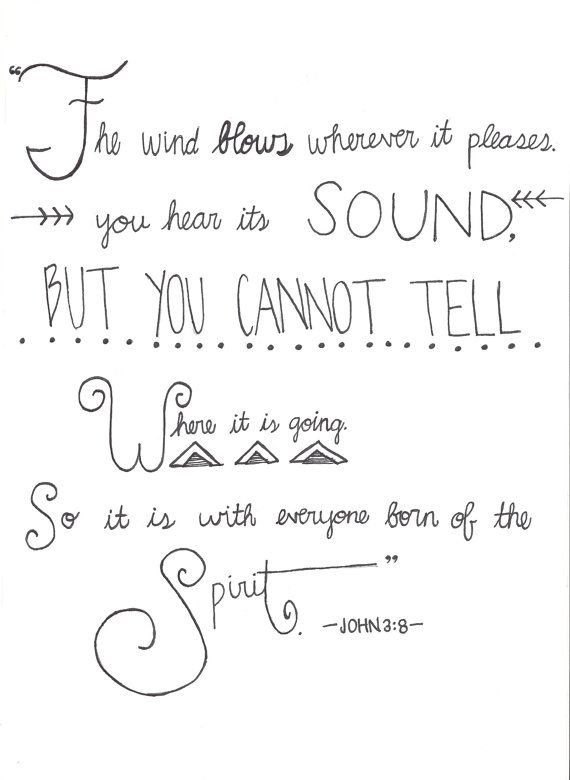 “The wind blows wherever it pleases.
you hear its SOUND,
BUT YOU CANNOT TELL
Where it is going.
So it is with everyone born of the
Spirit.”
—JOHN 3:8—